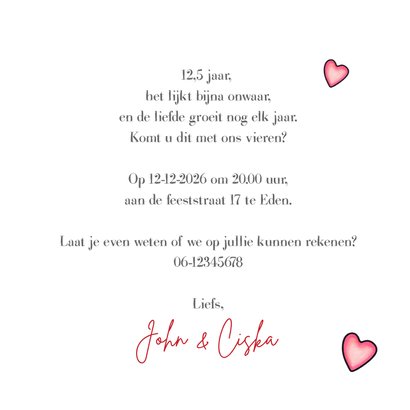 12,5 jaar,
het lijkt bijna onwaar,
en de liefde groeit nog elk jaar.
Komt u dit met ons vieren?
Op 12-12-2026 om 20.00 uur,
aan de feeststraat 17 te Eden.
Laat je even weten of we op jullie kunnen rekenen?
06-12345678
Liefs,
John & Ciska